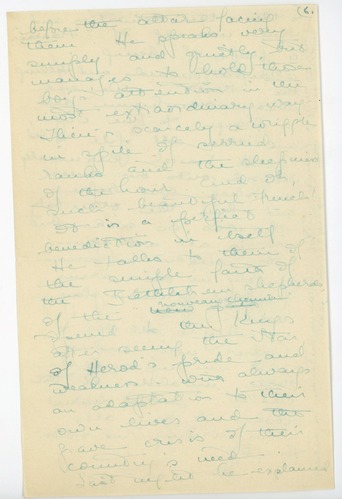 (6.
before the altar facing
them He speaks very
simply and quietly but
manages to hold those
boys attention in the
most extraordinary way
There's scarcely a wriggle
in spite of
and the sleepiness
of the hour And Oh,
such beautiful French!
It is a perfect
benediction in itself
He talks to them of
the simple faith of
the Bethlehem shepherds
of the nouveau chemin
to the Kings
after seeing the Star
of Herod's pride and
weakness. with always
an adaptation to their
own lives and the
grave crisis of their
country's need
Last night he explained